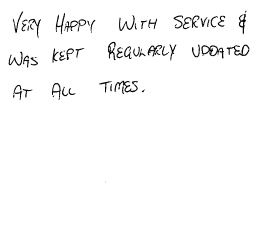 VERY HAPPY WITH SERVICE &
WAS KEPT REGULARLY UPDATED
AT ALL TIMES.